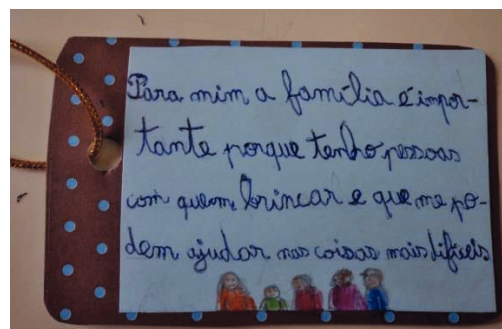 Para mim a família é impor-
tante porque tenho pessoas
com quem brincar e que me po-
dem ajudar nas coisas mais difíceis